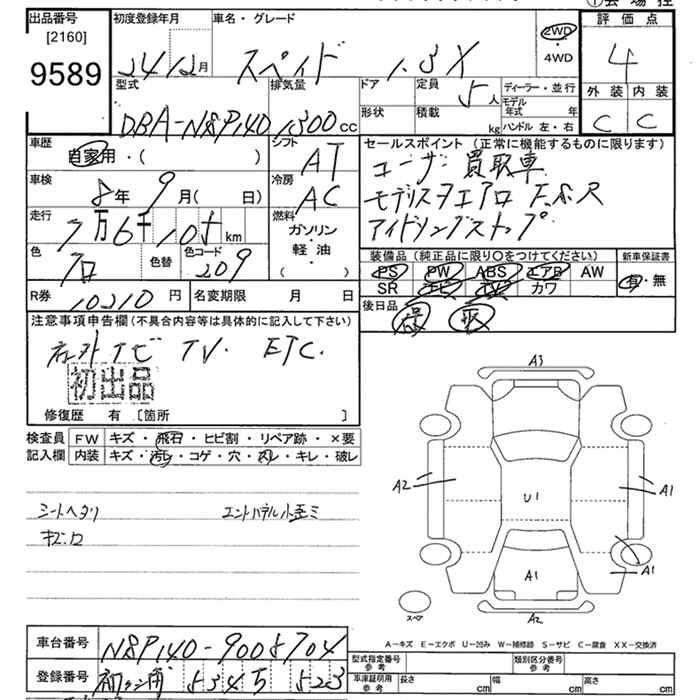 会 場 控
出品番号 初度登録年月 車名・グレード 評 価 点
[2160]
9589
24 12月 スペイド 1.3X
2WD
・
4WD
4
型式 排気量 ドア 定員 ディーラー・並行 外 装 内 装
DBA-NSP140 1300cc 5人 モデル年式 年
形状 積載 kg ハンドル 左・右 C C
車歴 シフト セールスポイント (正常に機能するものに限ります)
自家用・( ) AT ユーザー買取車
車検 冷房 モデリスタエアロ F.S.R
8年 9月( 日) AC アイドリングストップ
走行 燃料
7万6千10 km ガソリン
・
軽・油
( )
色 色替 色コード
クロ 209
装備品 (純正品に限り○をつけてください) 新車保証書
PS PW ABS エアB AW
SR ナビ TV カワ
有・無
R券 10210円 名変期限 月 日
後日品
注意事項申告欄(不具合内容等は具体的に記入して下さい)
社外ナビ TV. ETC.
初出品
修復歴 有 〔箇所 〕
検査員 FW キズ・飛石・ヒビ割・リペア跡・×要
記入欄 内装 キズ・汚レ・コゲ・穴・スレ・キレ・破レ
シートヘタリ エンドパネル小歪ミ
A3
A2 U1 A1
A1 A1
スペア A2
A-キズ E-エクボ U-凹み W-補修跡 S-サビ C-腐食 XX-交換済
車台番号 NSP140-9005704
型式指定番号 参考 類別区分番号 参考
登録番号 5345 523
車庫証明用 参考 長さ cm 幅 cm 高さ cm